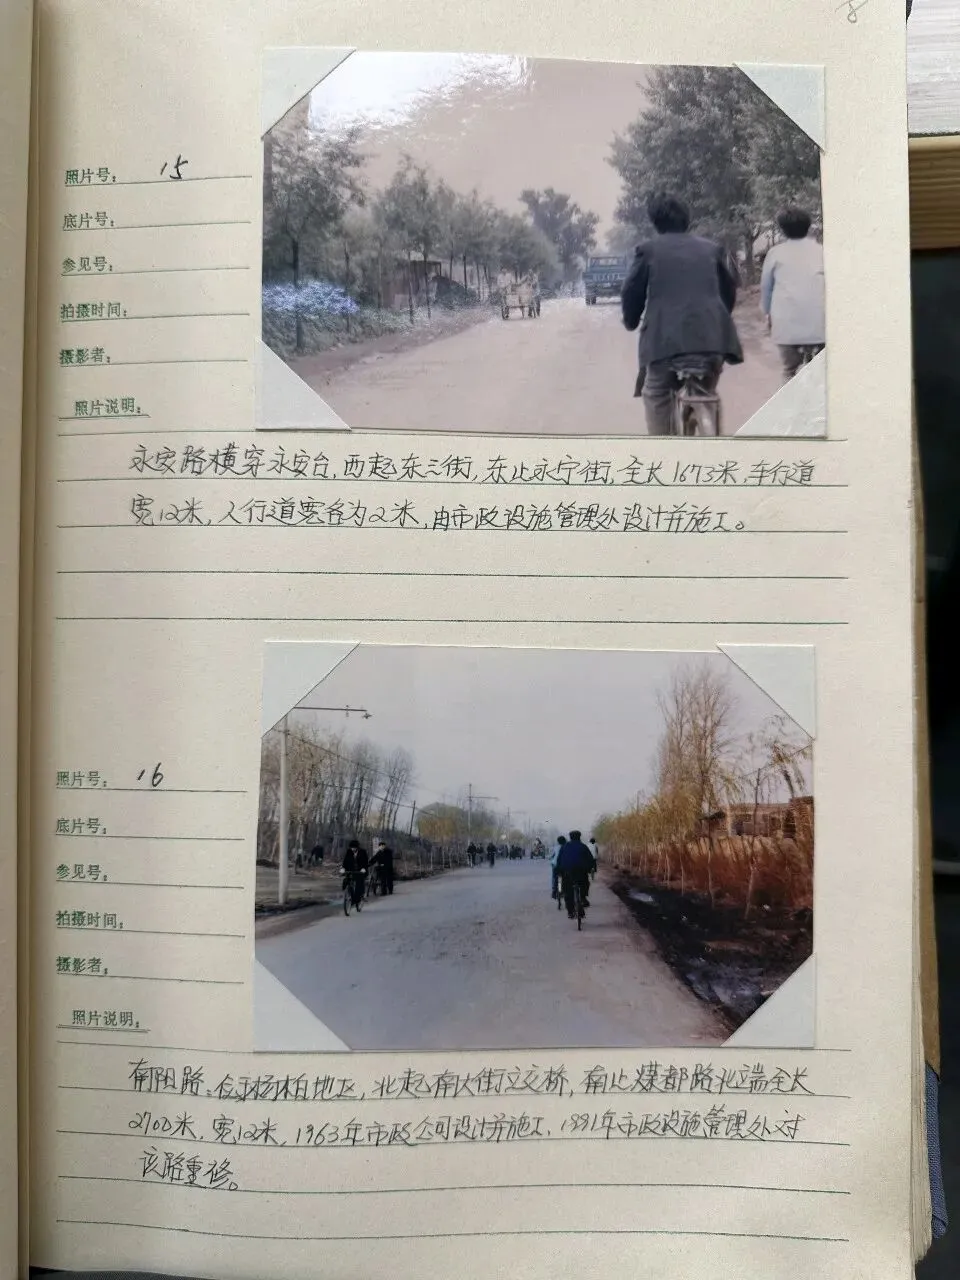 8
照片号: 15
底片号:
参见号:
拍摄时间:
摄影者:
照片说明:
永安路横穿永安台,西起东三街,东止永宁街,全长1673米,车行道
宽12米,人行道宽各为2米,由市政设施管理处设计并施工。
照片号: 16
底片号:
参见号:
拍摄时间:
摄影者:
照片说明:
南阳路:位于杨柏地区,北起南大街立交桥,南止煤都路北端全长
2700米,宽12米,1963年市政公司设计并施工,1991年市政设施管理处对
该路重修。